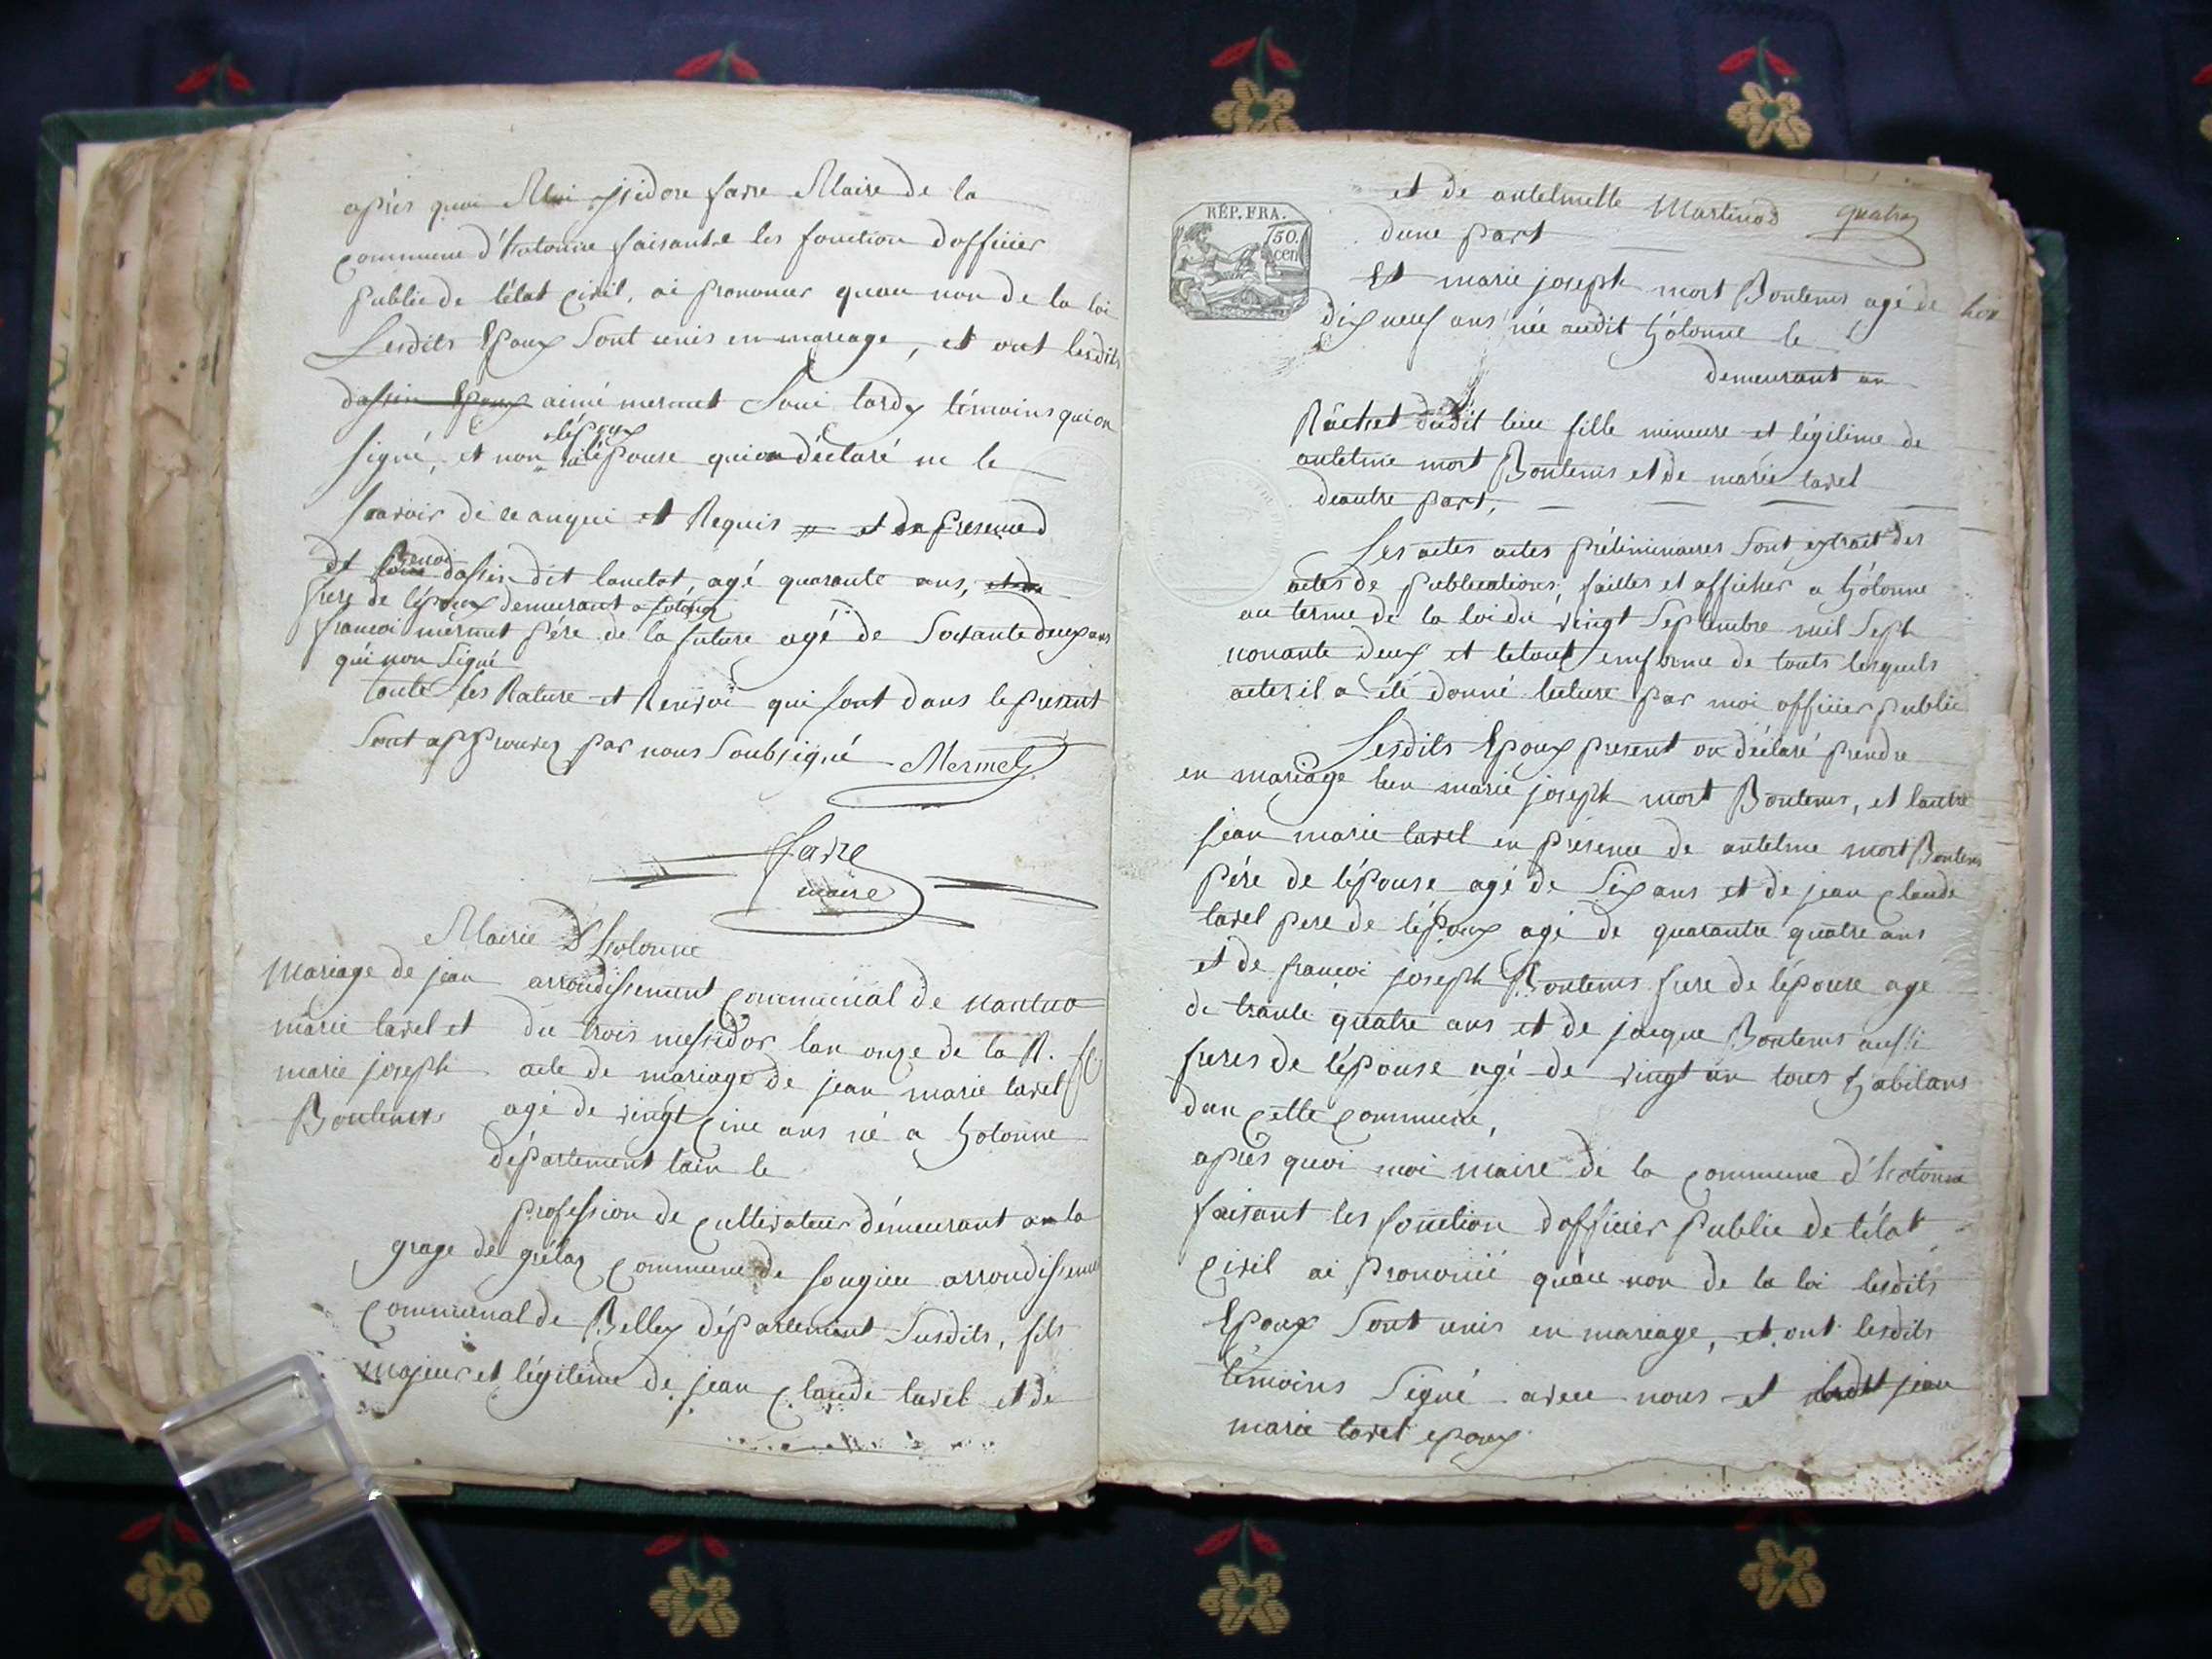 après quoi Moi isidore favre Maire de la
commune d'hotonne faisant les fonction dofficier
public de létat civil, ai prononcer quau non de la loi
Lesdits Epoux Sont unis en mariage, et ont lesdits
dassin Epoux aimé mermet Loui tardy témoins qui on
signé, et non lépoux ni lépouse qui on déclaré ne le
savoir de ce anquis et Requis et en presence
de benoi dassin dit lanclot, agé quarante ans,
frere de lépoux demeurant a
francoi mermet pére de la future agé de Soixante deux ans
qui non Signé
toute les Rature et Renvoi qui sont dans le présent
Sont approuvez par nous Soubsigné Mermet
favre
maire
Mairie D'hotonne
Mariage de jean
marie tavel et
marie joseph
Bontems
arrondissement communal de nantua
du trois messidor lan onze de la R. f.
acte de mariage de jean marie tavel
agé de vingt cinc ans né a hotonne
département lain le
profession de cultivateur démeurant a la
grage de grélaz commune de songieu arrondisseme
communal de Belley département Susdits, fils
majeur et légitime de jean claude tavel et de
RÉP. FRA.
50.
cen
et de antelmette Martinod
dune part
quatre
Et marie joseph mort Bontems agé de
dix neuf ans née audit hótonne le
demeurant au
Ráclet dudit lieu fille mineure et légitime de
antelme mort Bontems et de marie tavel
deautre part,
Les actes actes préliminaires Sont extrait des
actes de publications, faittes et afficher a hótonne
au terme de la loi du vingt Septembre mil Sept
nonante deux et letout enforme de touts lesquels
actes il a été donné lecture par moi officier public
Lesdits Epoux present on déclaré prendre
en mariage lun marie joseph mort Bontems, et lautre
jean marie tavel en présence de antelme mort Bontems
pére de lépouse agé de Six ans et de jean claude
tavel pere de lépoux agé de quarantre quatre ans
et de francoi joseph Bontems frere de lépouse age
de trante quatre ans et de jacque Bontems aussi
freres de lépouse agé de vingt un tous habitans
dan cette commune,
après quoi moi maire de la commune d'hotonne
faisant les fonction dofficier public de létat
civil ai prononcé quau non de la loi lesdits
Epoux Sont unis en mariage, et ont lesdits
témoins Signé avec nous et ledit jean
marie tavel epoux